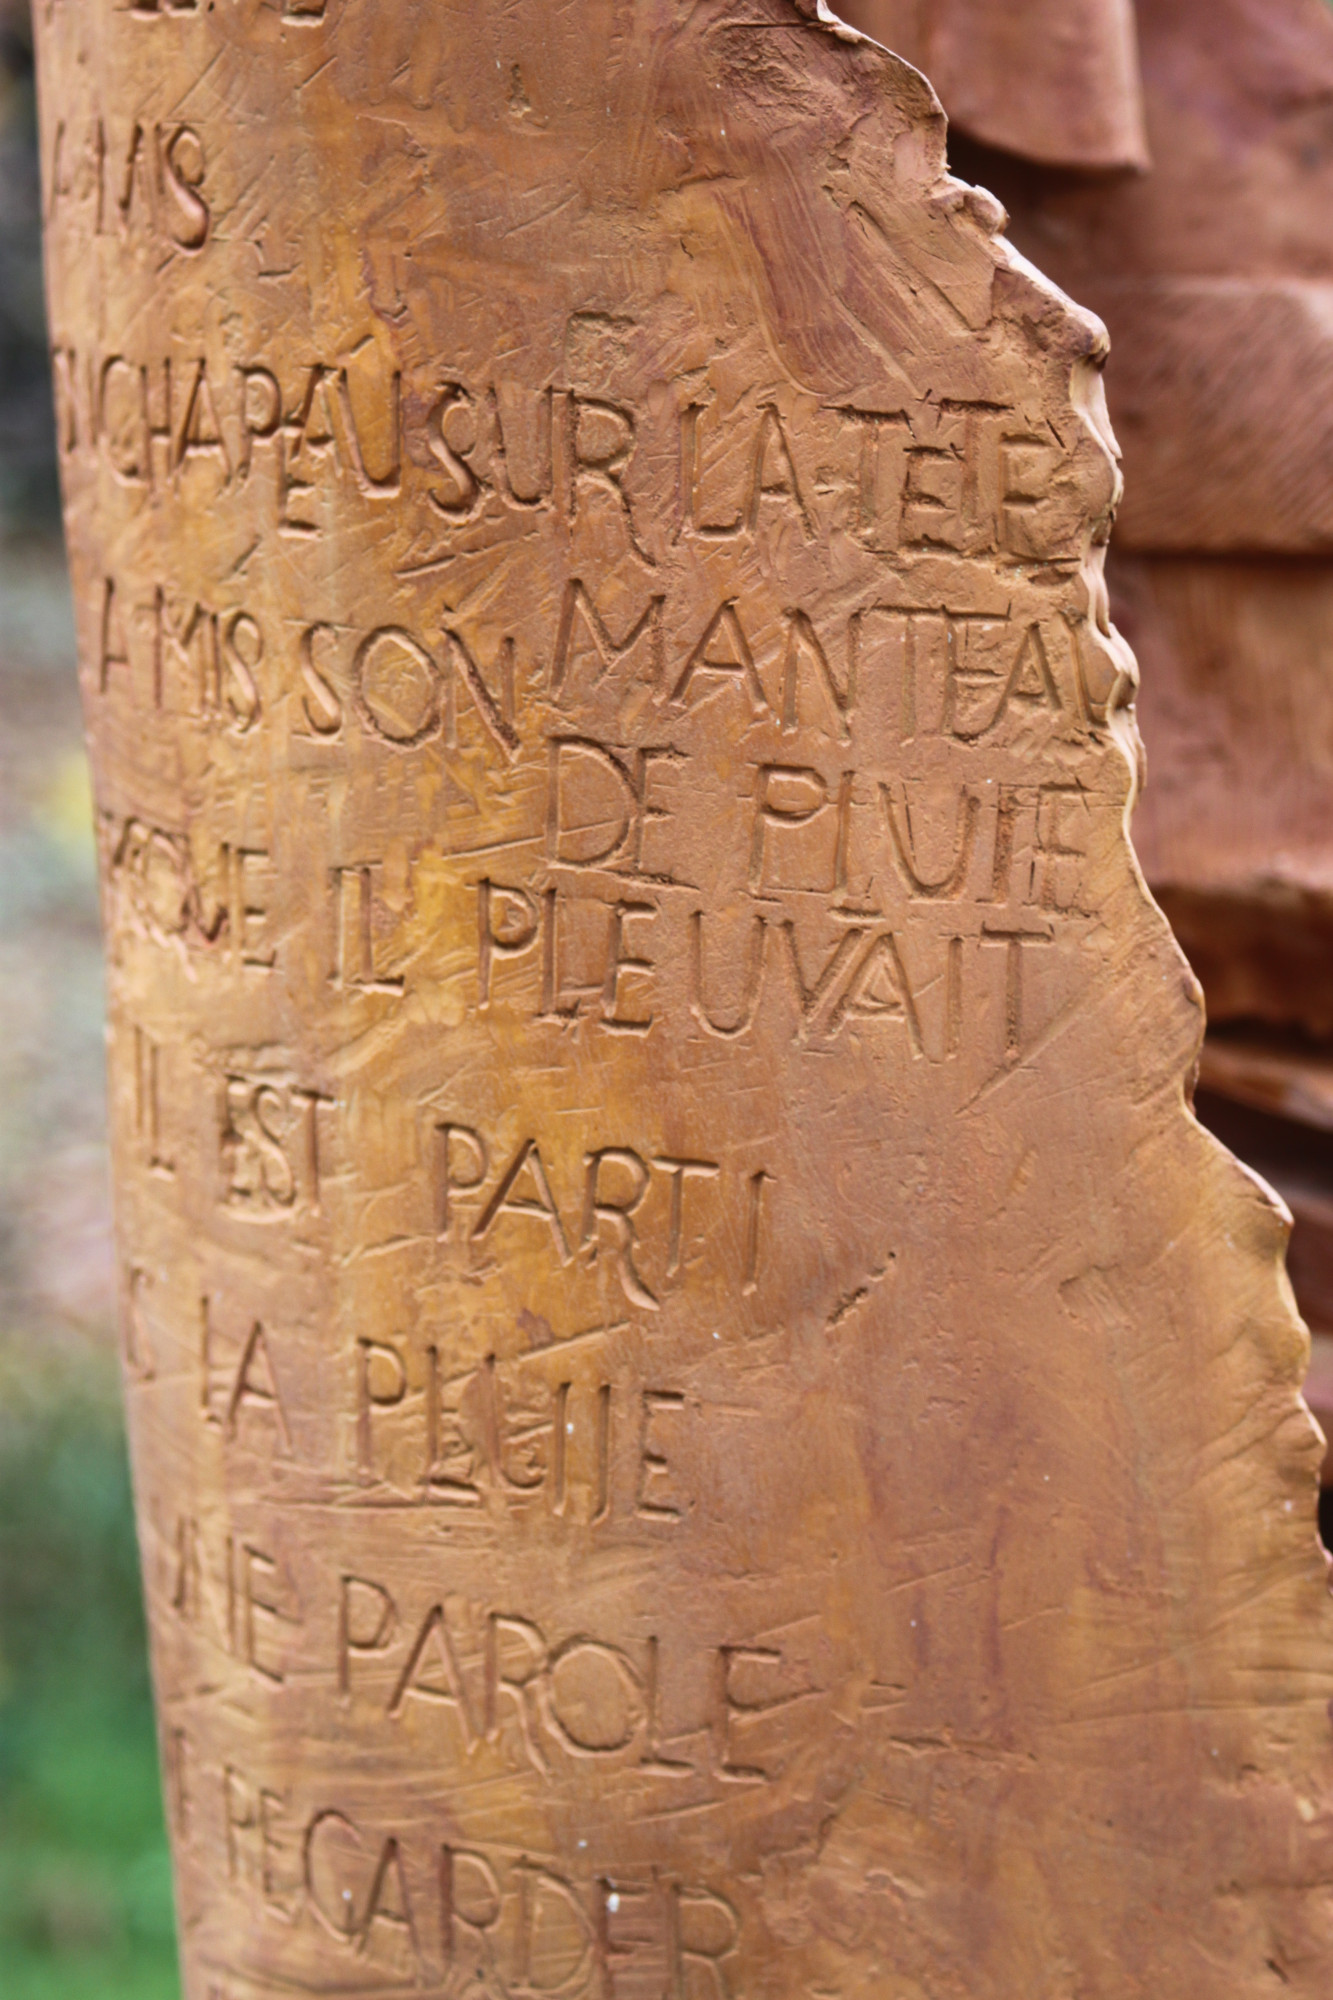 A MIS
ON CHAPEAU SUR LA TETE
A MIS SON MANTEAU
DE PLUIE
QUE IL PLEUVAIT
IL EST PARTI
S LA PLUIE
UNE PAROLE
E REGARDER